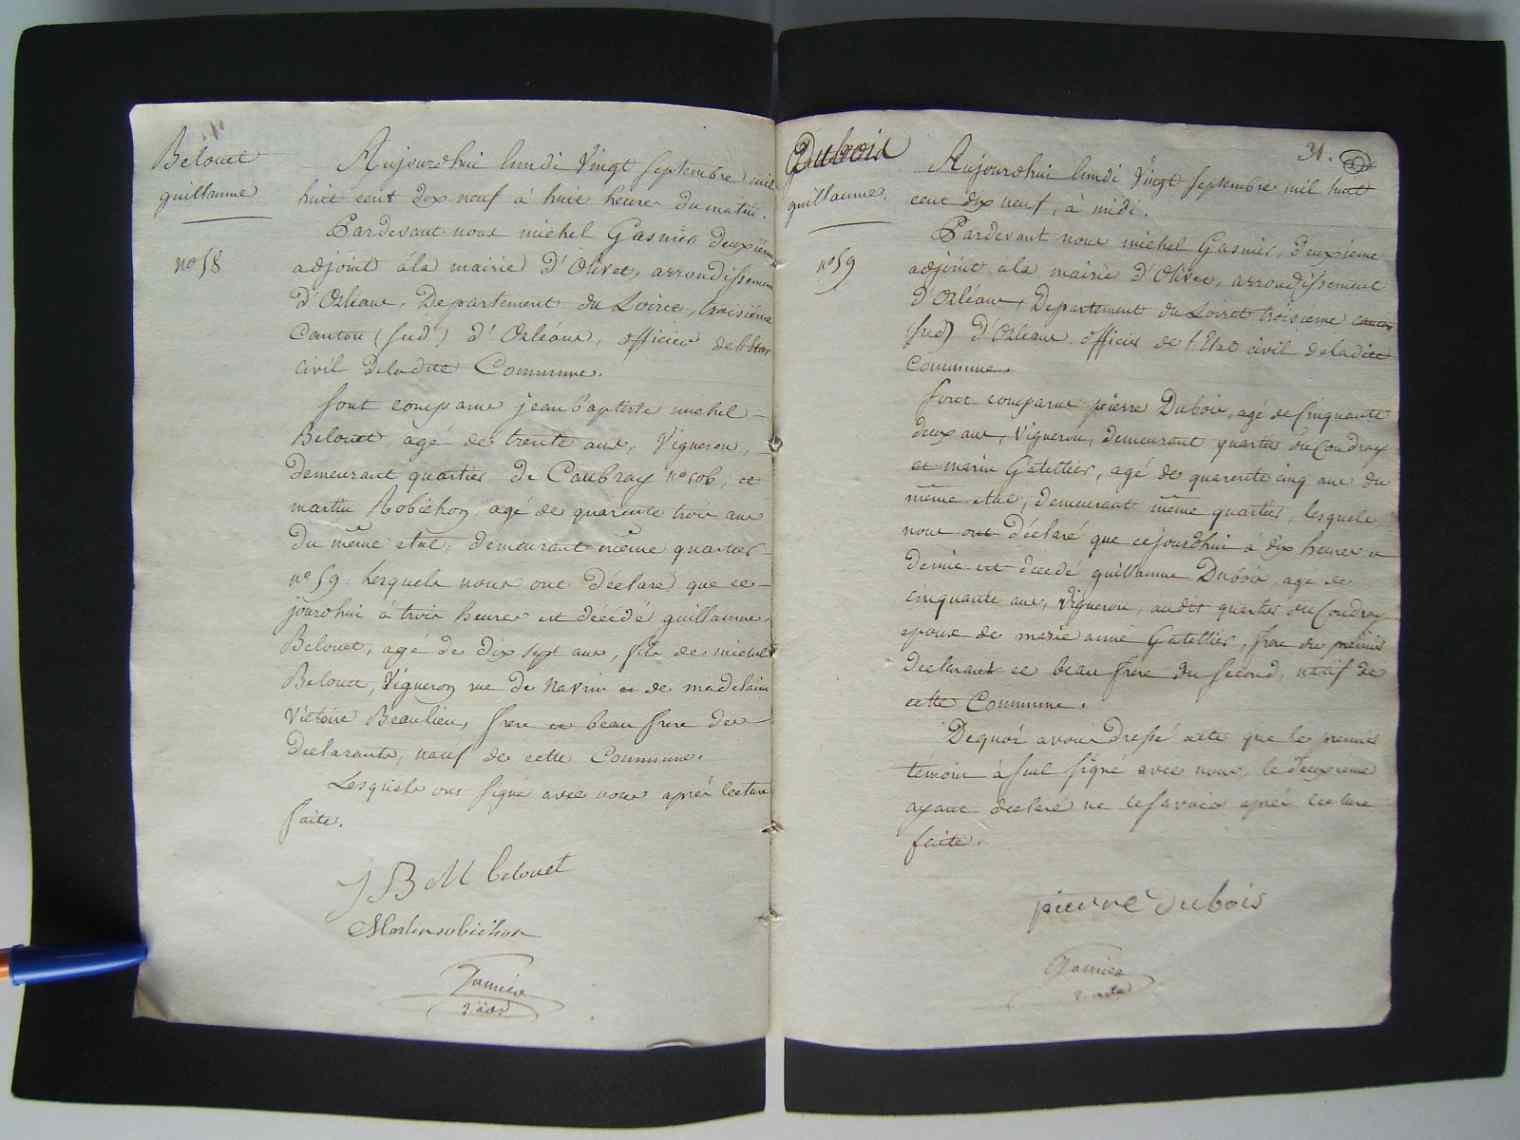 Belouet
guillaume
n° 58
Aujourdhui lundi Vingt septembre mil
huit cent dix neuf à huit heures du matin.
Pardevant nous michel Gasnier deuxième
adjoint à la mairie d'Olivet, arrondissement
D'Orléans, Département du Loiret, troisième
Canton (sud) d'Orléans, officier de l'Etat
civil de ladite Commune.
sont comparus jean baptiste michel
Belouet agé de trente ans, Vigneron,
demeurant quartier de n° 506, et
martin Robichon, agé de quarante trois ans
Du même état, demeurant même quartier
n° 59. Lesquels nous ont déclaré que ce
jourdhui à trois heures est décédé guillaume
Belouet, agé de dix sept ans, fils de michel
Belouet, Vigneron rue de et de madelaine
Victoire Beaulieu, frere et beau frere des
declarants, natif de cette Commune.
Lesquels ont signé avec nous après lecture
faite.
J B M belouet
Martin robichon
Gasnier
Dubois
guillaume.
n° 59
31.
Aujourdhui lundi Vingt septembre mil huit
cent dix neuf, à midi.
Pardevant nous michel Gasnier, deuxieme
adjoint à la mairie d'Olivet, arrondissement
d'Orléans, Département du Loiret troisieme canton
(sud) d'Orléans officier de l'Etat civil de ladite
Commune.
sont comparus pierre Dubois, agé de Cinquante
deux ans, Vigneron, demeurant quartier du Coudray
et marin Gatellier, agé de quarente cinq ans du
même état, demeurant même quartier, lesquels
nous ont déclaré que cejourdhui à dix heures et
demie est decédé guillaume Dubois, agé de
cinquante ans, Vigneron, audit quartier du Coudray
epoux de marie anne Gatellier, frere du premier
declarant et beau frere du second, natif de
cette Commune.
Dequoi avons dressé acte que le premier
temoin à seul signé avec nous, le deuxieme
ayant declaré ne le savoir après lecture
faite.
pierre dubois
Gasnier